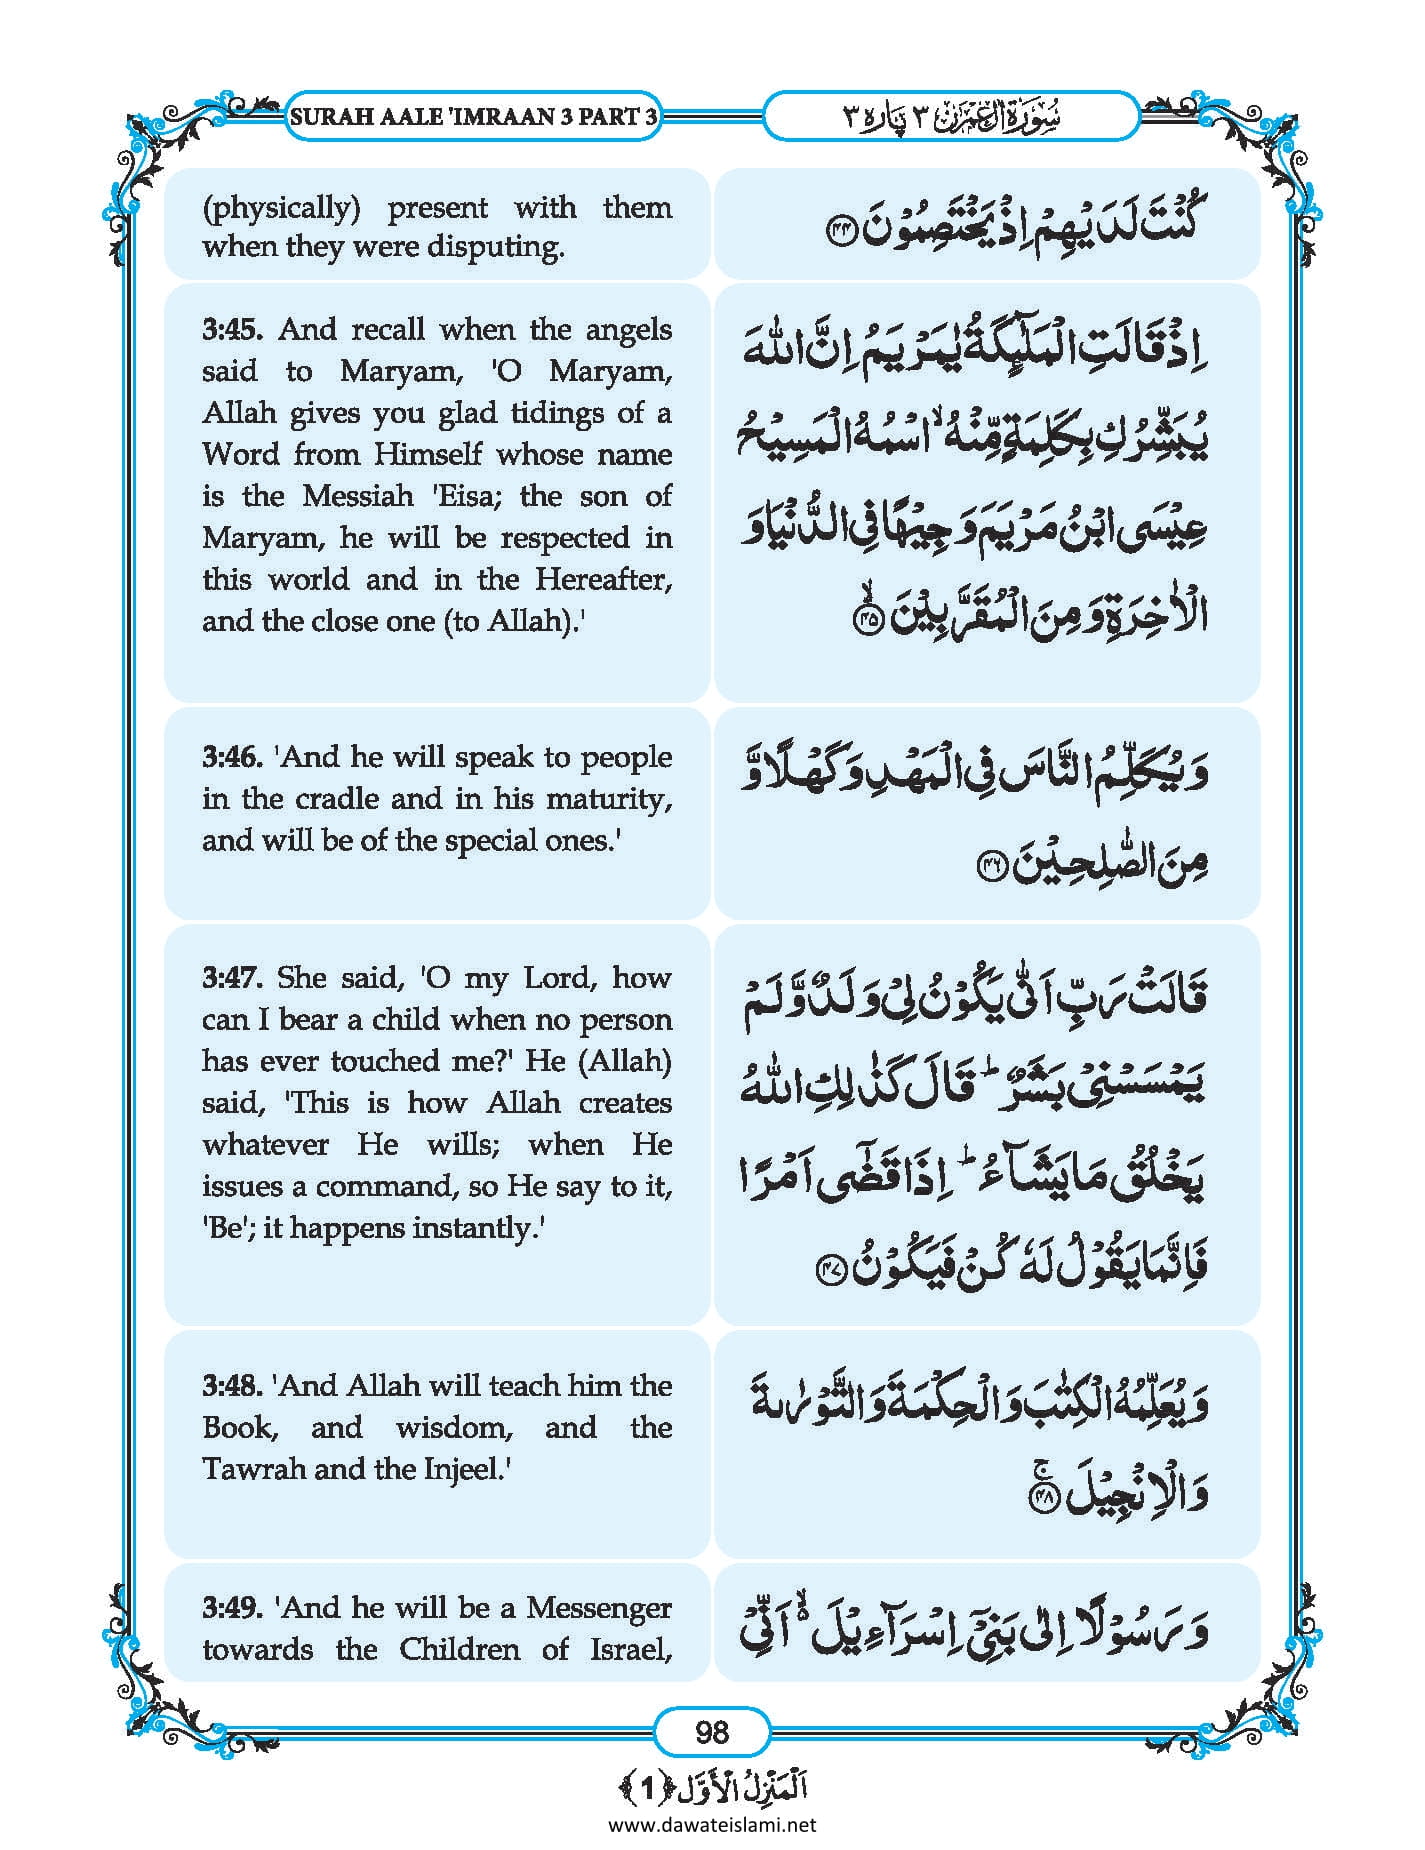 SURAH AALE 'IMRAAN 3 PART 3
سُوْرَةُ اٰلِ عِمْرٰن ٣ پَاره ٣
(physically) present with them
when they were disputing.
كُنْتَ لَدَيْهِمْ اِذْ يَخْتَصِمُوْنَ ﴿۴۴﴾
3:45. And recall when the angels
said to Maryam, 'O Maryam,
Allah gives you glad tidings of a
Word from Himself whose name
is the Messiah 'Eisa; the son of
Maryam, he will be respected in
this world and in the Hereafter,
and the close one (to Allah).'
اِذْ قَالَتِ الْمَلٰٓىِٕكَةُ يٰمَرْيَمُ اِنَّ اللّٰهَ
يُبَشِّرُكِ بِكَلِمَةٍ مِّنْهُ ۙ اسْمُهُ الْمَسِيْحُ
عِيْسَى ابْنُ مَرْيَمَ وَجِيْهًا فِي الدُّنْيَا وَ
الْاٰخِرَةِ وَ مِنَ الْمُقَرَّبِيْنَ ﴿ۙ۴۵﴾
3:46. 'And he will speak to people
in the cradle and in his maturity,
and will be of the special ones.'
وَ يُكَلِّمُ النَّاسَ فِي الْمَهْدِ وَ كَهْلًا وَّ
مِنَ الصّٰلِحِيْنَ ﴿۴۶﴾
3:47. She said, 'O my Lord, how
can I bear a child when no person
has ever touched me?' He (Allah)
said, 'This is how Allah creates
whatever He wills; when He
issues a command, so He say to it,
'Be'; it happens instantly.'
قَالَتْ رَبِّ اَنّٰى يَكُوْنُ لِيْ وَلَدٌ وَّ لَمْ
يَمْسَسْنِيْ بَشَرٌ ؕ قَالَ كَذٰلِكِ اللّٰهُ
يَخْلُقُ مَا يَشَآءُ ؕ اِذَا قَضٰٓى اَمْرًا
فَاِنَّمَا يَقُوْلُ لَهٗ كُنْ فَيَكُوْنُ ﴿۴۷﴾
3:48. 'And Allah will teach him the
Book, and wisdom, and the
Tawrah and the Injeel.'
وَ يُعَلِّمُهُ الْكِتٰبَ وَ الْحِكْمَةَ وَ التَّوْرٰىةَ
وَ الْاِنْجِيْلَ ﴿ۚ۴۸﴾
3:49. 'And he will be a Messenger
towards the Children of Israel,
وَ رَسُوْلًا اِلٰى بَنِيْٓ اِسْرَآءِيْلَ ۙ۬ اَنِّيْ
98
اَلْمَنْزِلُ الْاَوَّل ﴿1﴾
www.dawateislami.net